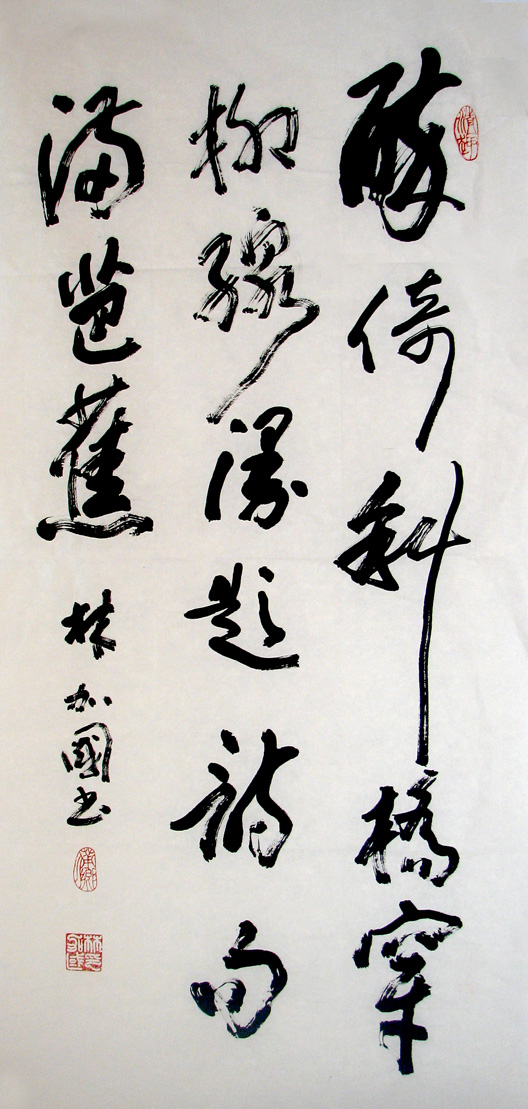 醉倚斜橋穿
柳線漫題詩句
滿芭蕉
林加國书